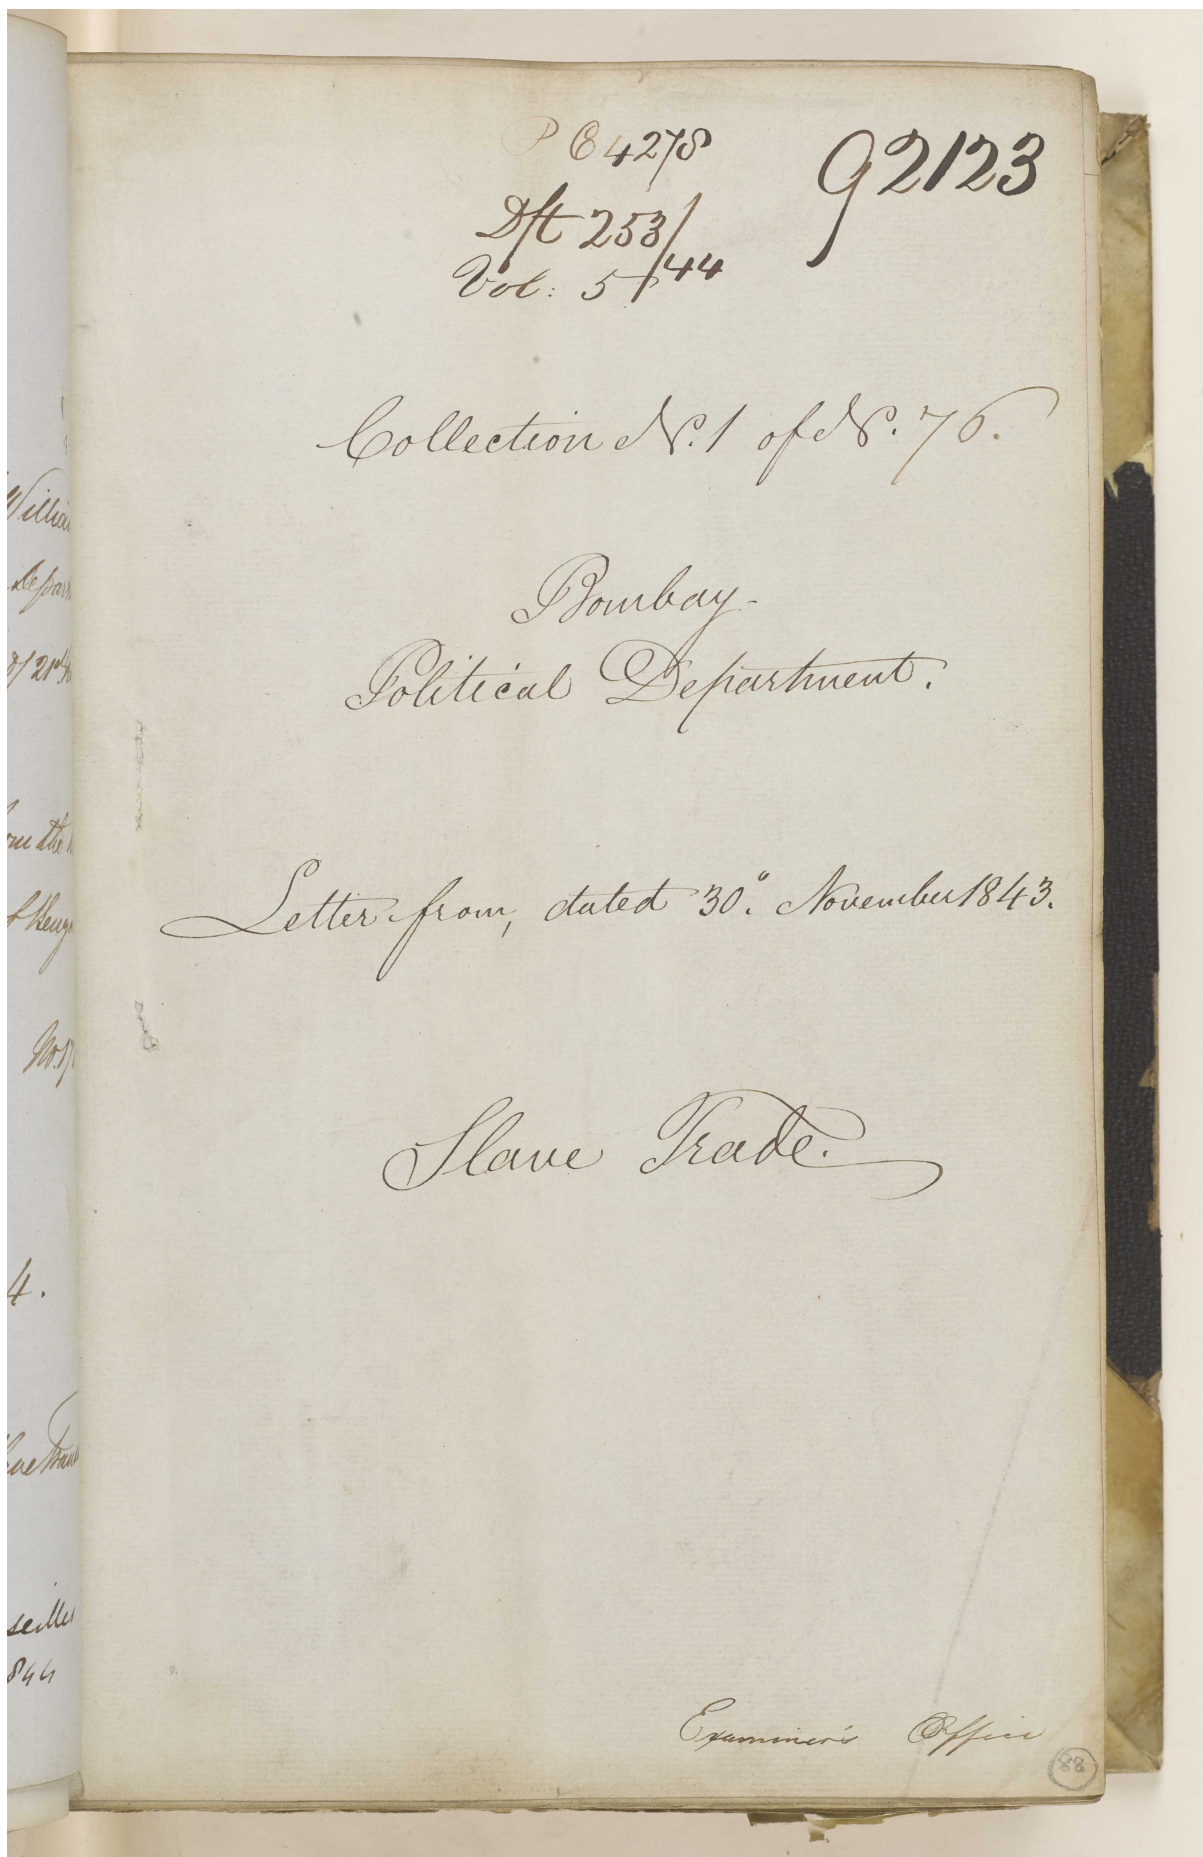 P C 4278
92123
Dft 253/44
Vol: 5
Collection No. 1 of No. 76.
Bombay
Political Department.
Letter from, dated 30th. November 1843.
Slave Trade.
Examiner's Office
88